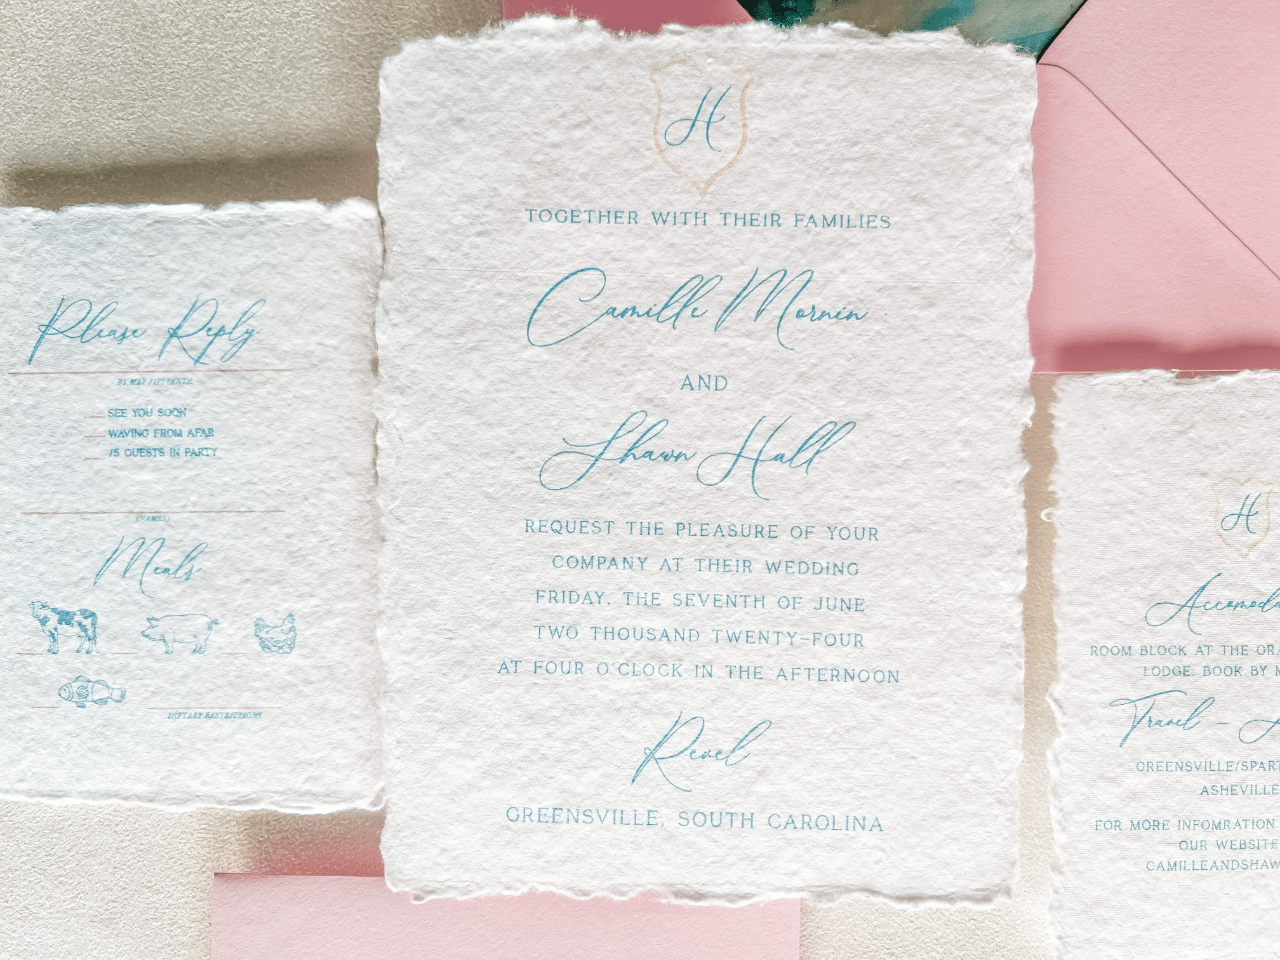 Please Reply
BY MAY FIFTEENTH
SEE YOU SOON
WAVING FROM AFAR
/5 GUESTS IN PARTY
(NAMES)
Meals
DIETARY RESTRICTIONS
H
TOGETHER WITH THEIR FAMILIES
Camille Mornin
AND
Shawn Hall
REQUEST THE PLEASURE OF YOUR
COMPANY AT THEIR WEDDING
FRIDAY, THE SEVENTH OF JUNE
TWO THOUSAND TWENTY-FOUR
AT FOUR O'CLOCK IN THE AFTERNOON
Revel
GREENSVILLE, SOUTH CAROLINA
H
Accomoda
ROOM BLOCK AT THE GRA
LODGE. BOOK BY M
Travel -
GREENSVILLE/SPART
ASHEVILLE
FOR MORE INFOMRATION
OUR WEBSITE
CAMILLEANDSHAW